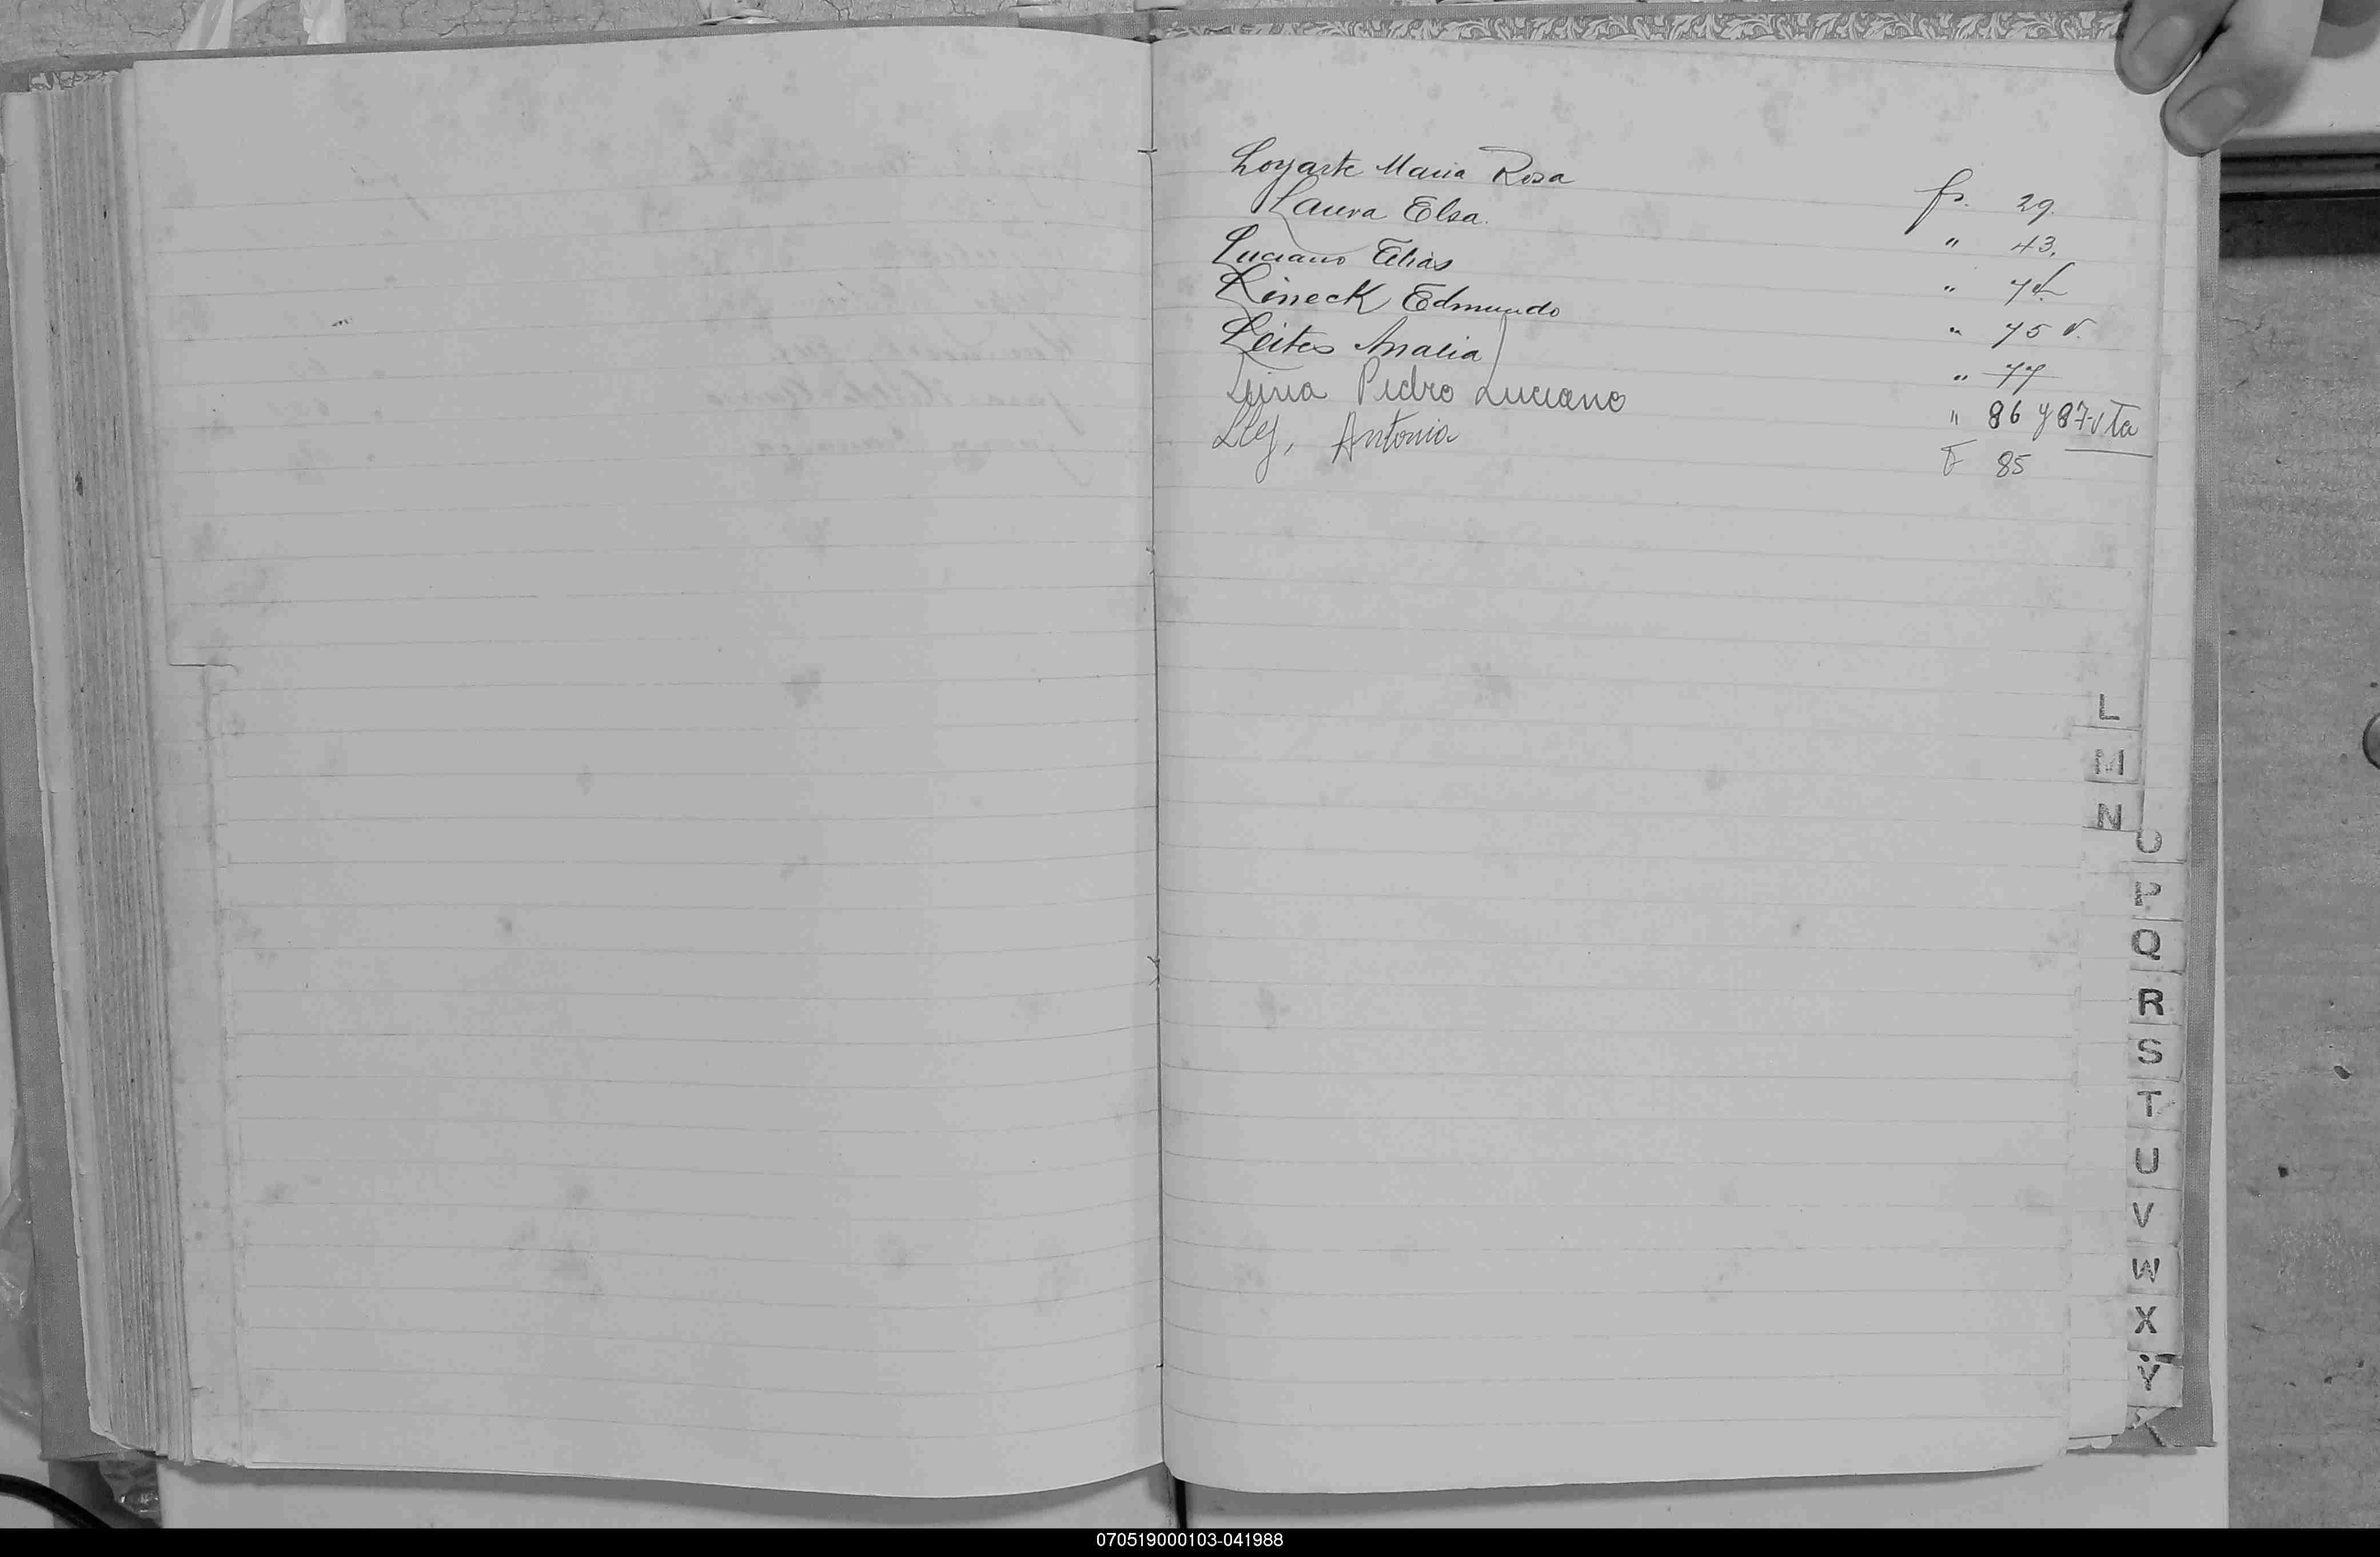 Loyarte Maria Rosa fs. 29.
Laura Elsa. " 43.
Luciano Elias "
Lineck Edmundo " 75 v.
Leites Analia " 77
Luna Pedro Luciano " 86 y 87 vta
Lley, Antonia F 85
L
M
N
O
P
Q
R
S
T
U
V
W
X
Y
070519000103-041988